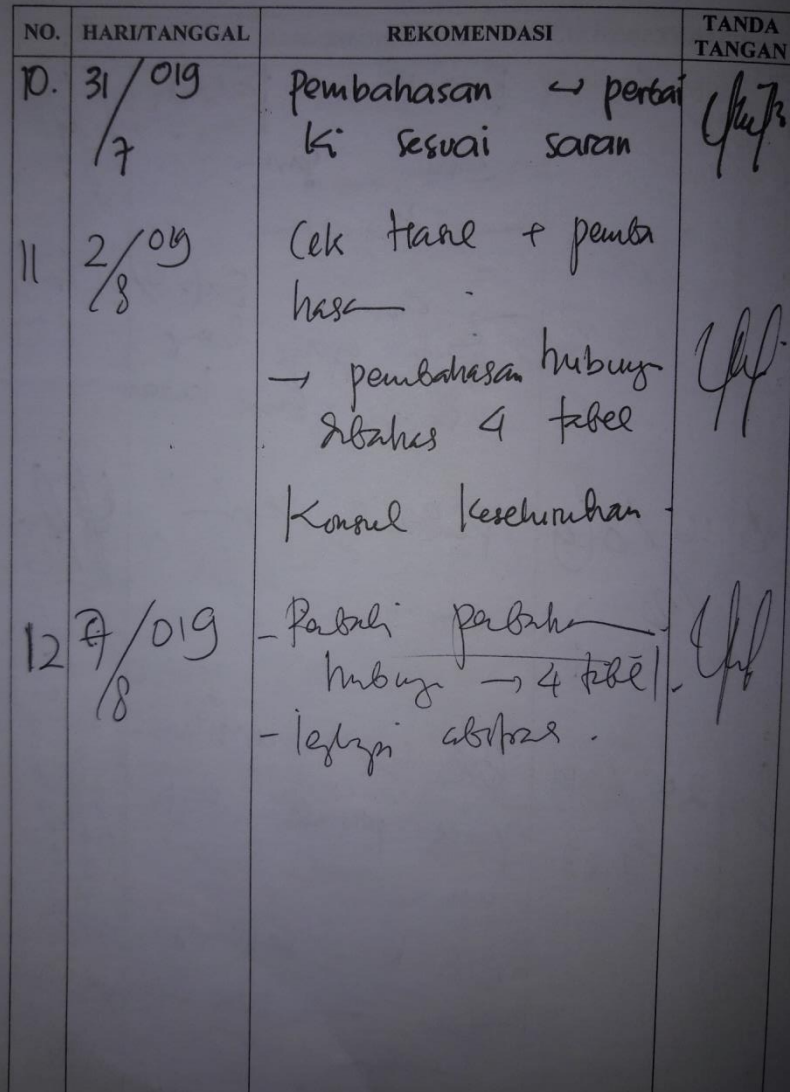 NO. HARI/TANGGAL REKOMENDASI TANDA TANGAN
10. 31/7 019 Pembahasan ↪ perbai
ki sesuai saran
11 2/8 019 Cek Hasil + pemba
hasan
→ pembahasan hubung
dibahas 4 tabel
Konsul Keseluruhan
12 7/8 019 -
hubung → 4 tabel.
- abstrak.